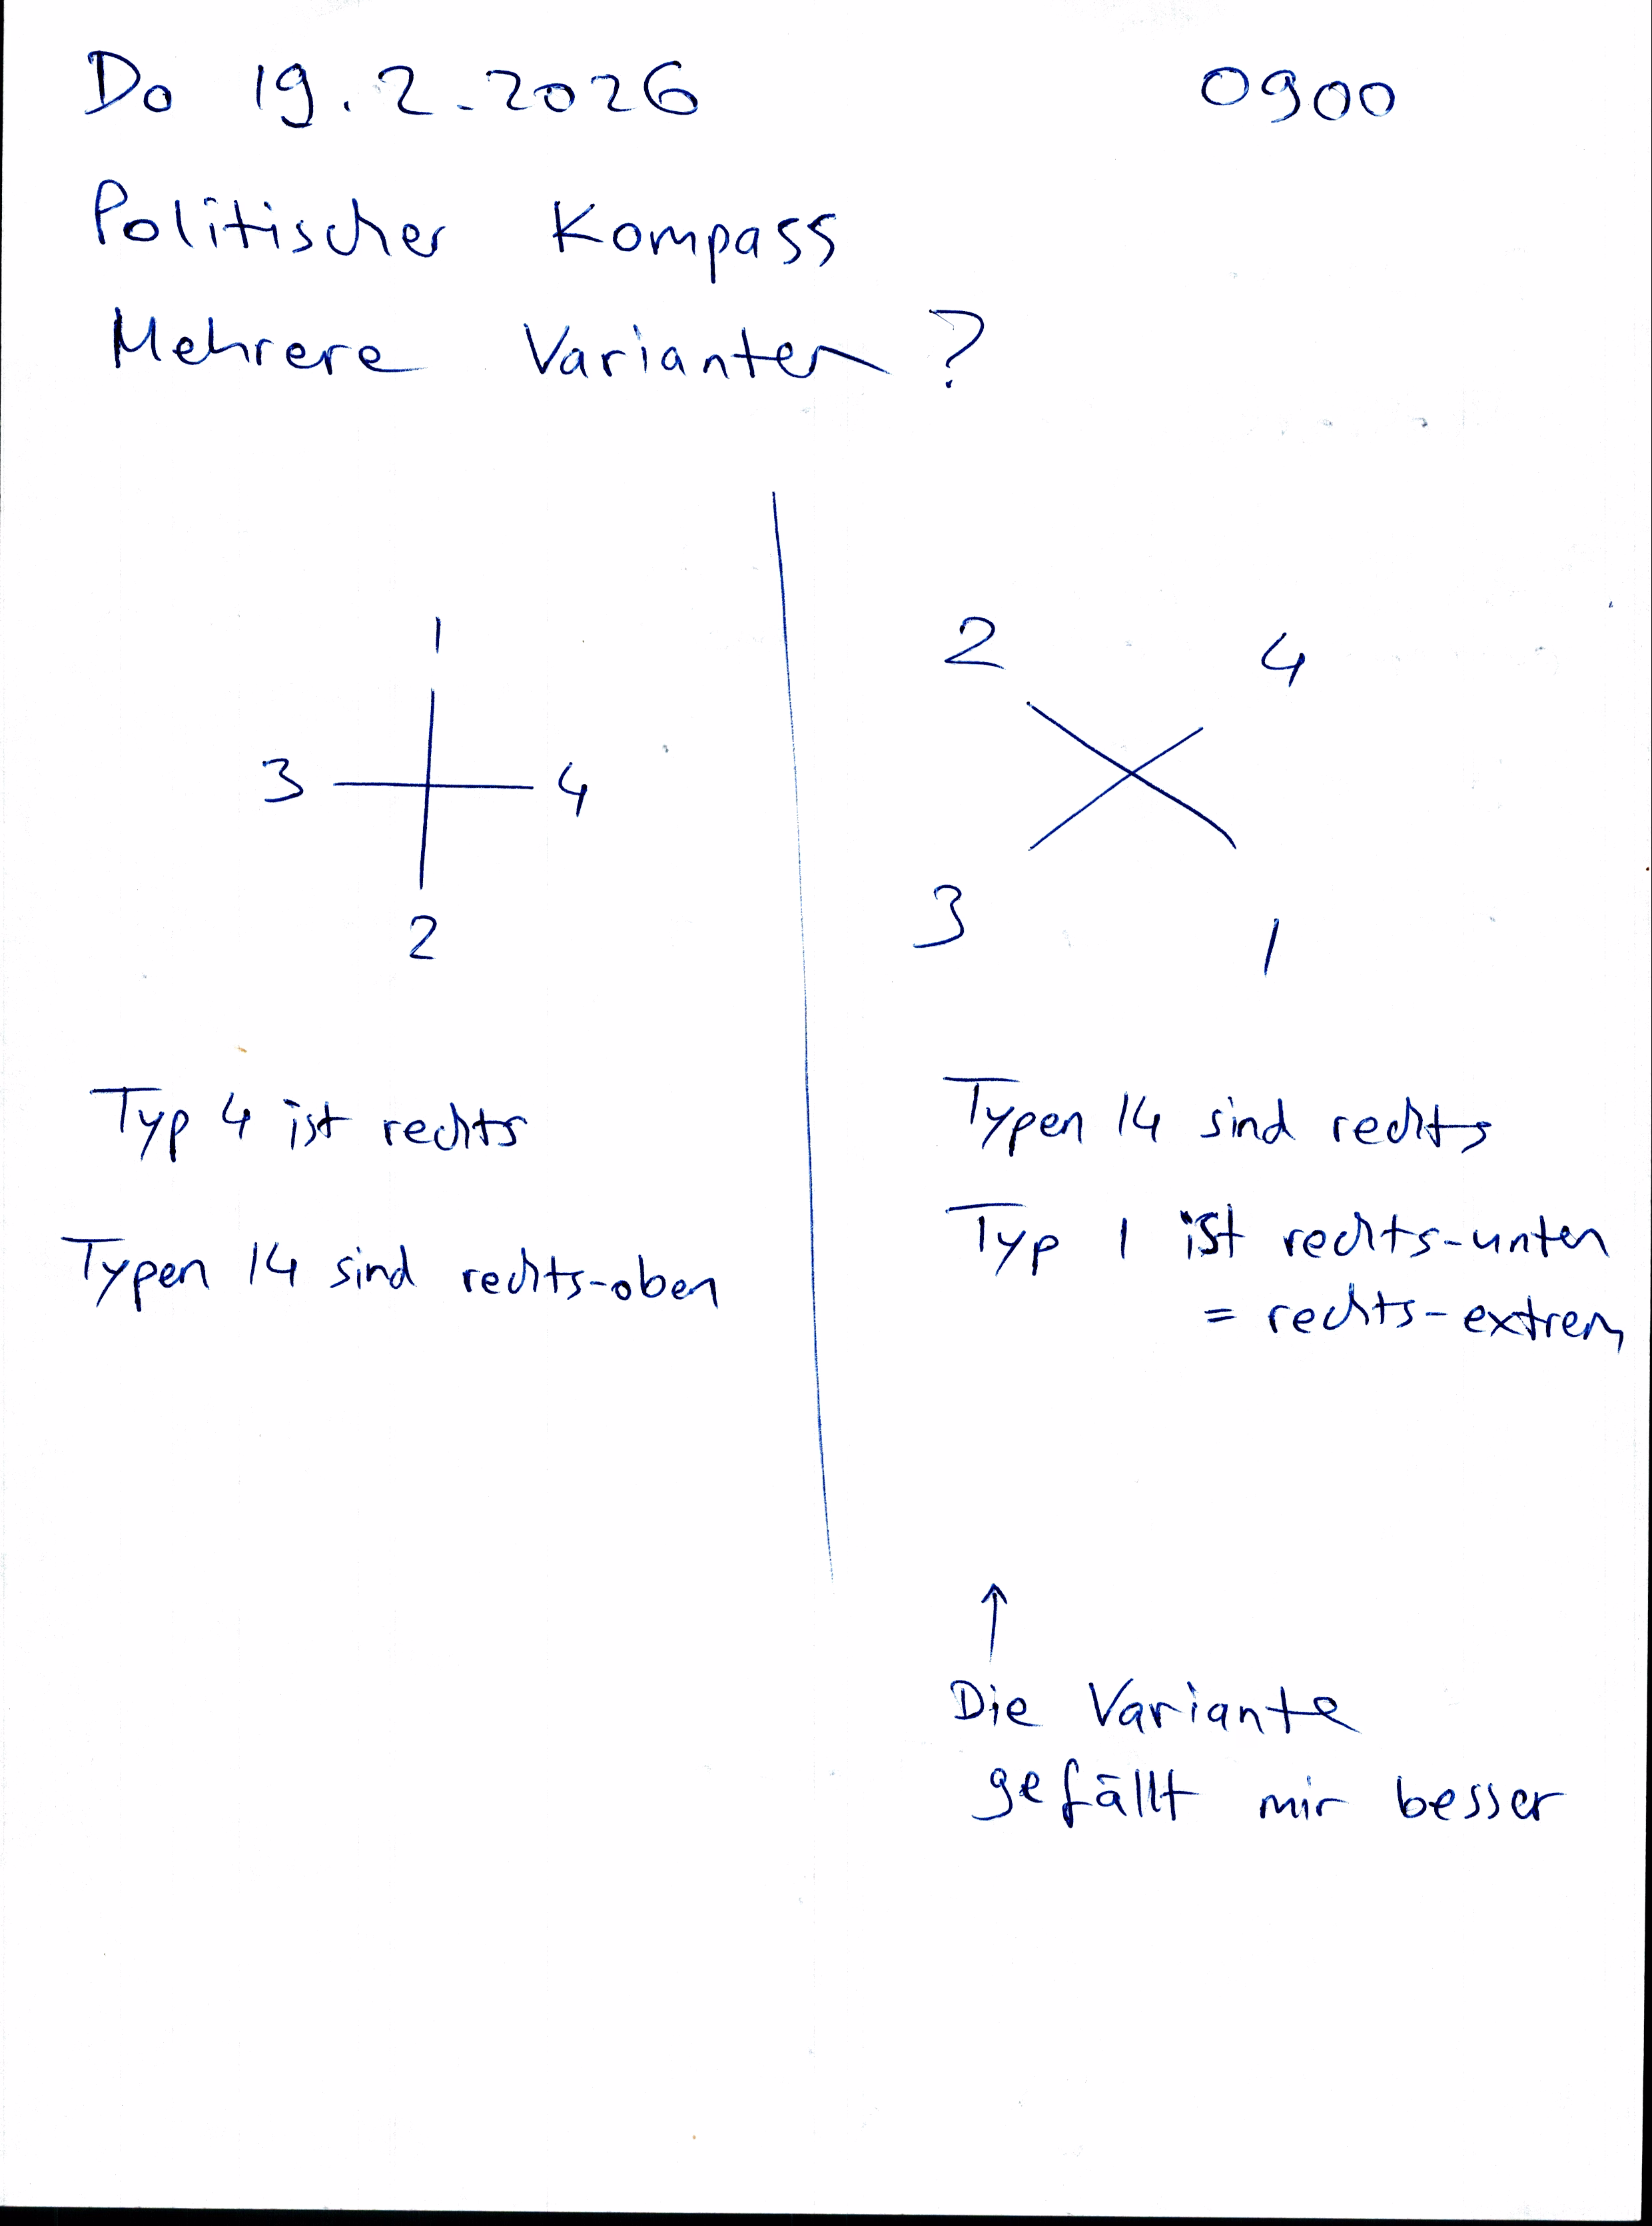 Do 19.2.2026 0900
Politischer Kompass
Mehrere Varianten?
1
3 4
2
Typ 4 ist rechts
Typen 14 sind rechts-oben
2 4
3 1
Typen 14 sind rechts
Typ 1 ist rechts-unten
= rechts-extrem
↑
Die Variante
gefällt mir besser